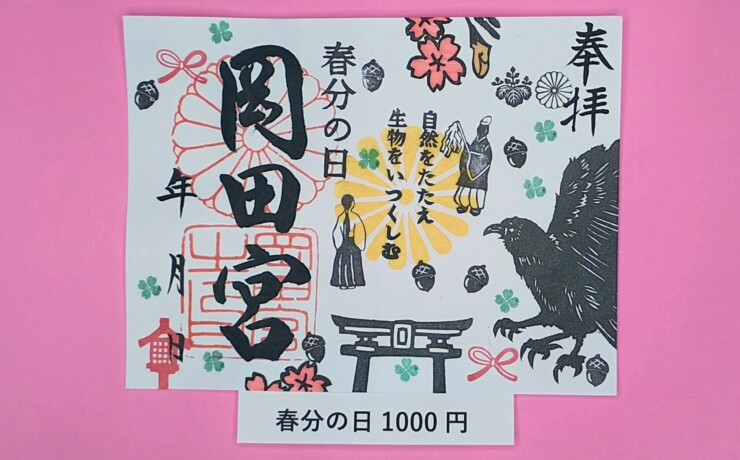 奉拝
春分の日
自然をたたえ
生物をいつくしむ
岡田宮
年 月 日
春分の日 1000 円